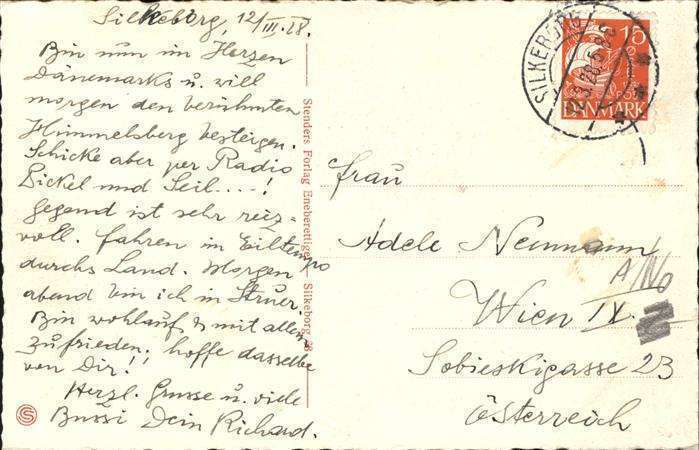 Silkeborg, 12/III.28.
Bin nun im Herzen
Dänemarks u. will
morgen den berühmten
Himmelsberg besteigen.
Schicke aber per Radio
Pickel und Seil....!
Gegend ist sehr reiz-
voll. Fahren im Eiltempo
durchs Land. Morgen
abend bin ich in Struer.
Bin wohlauf & mit allem
zufrieden; hoffe dasselbe
von Dir!!
Herzl. Grüsse u. viele
Bussi Dein Richard.
Stenders Forlag Eneberettiget Silkeborg
SILKEBORG
15
DANMARK
Frau
Adele Neumann
A/No
Wien IX.
Sobieskigasse 23
Österreich
S